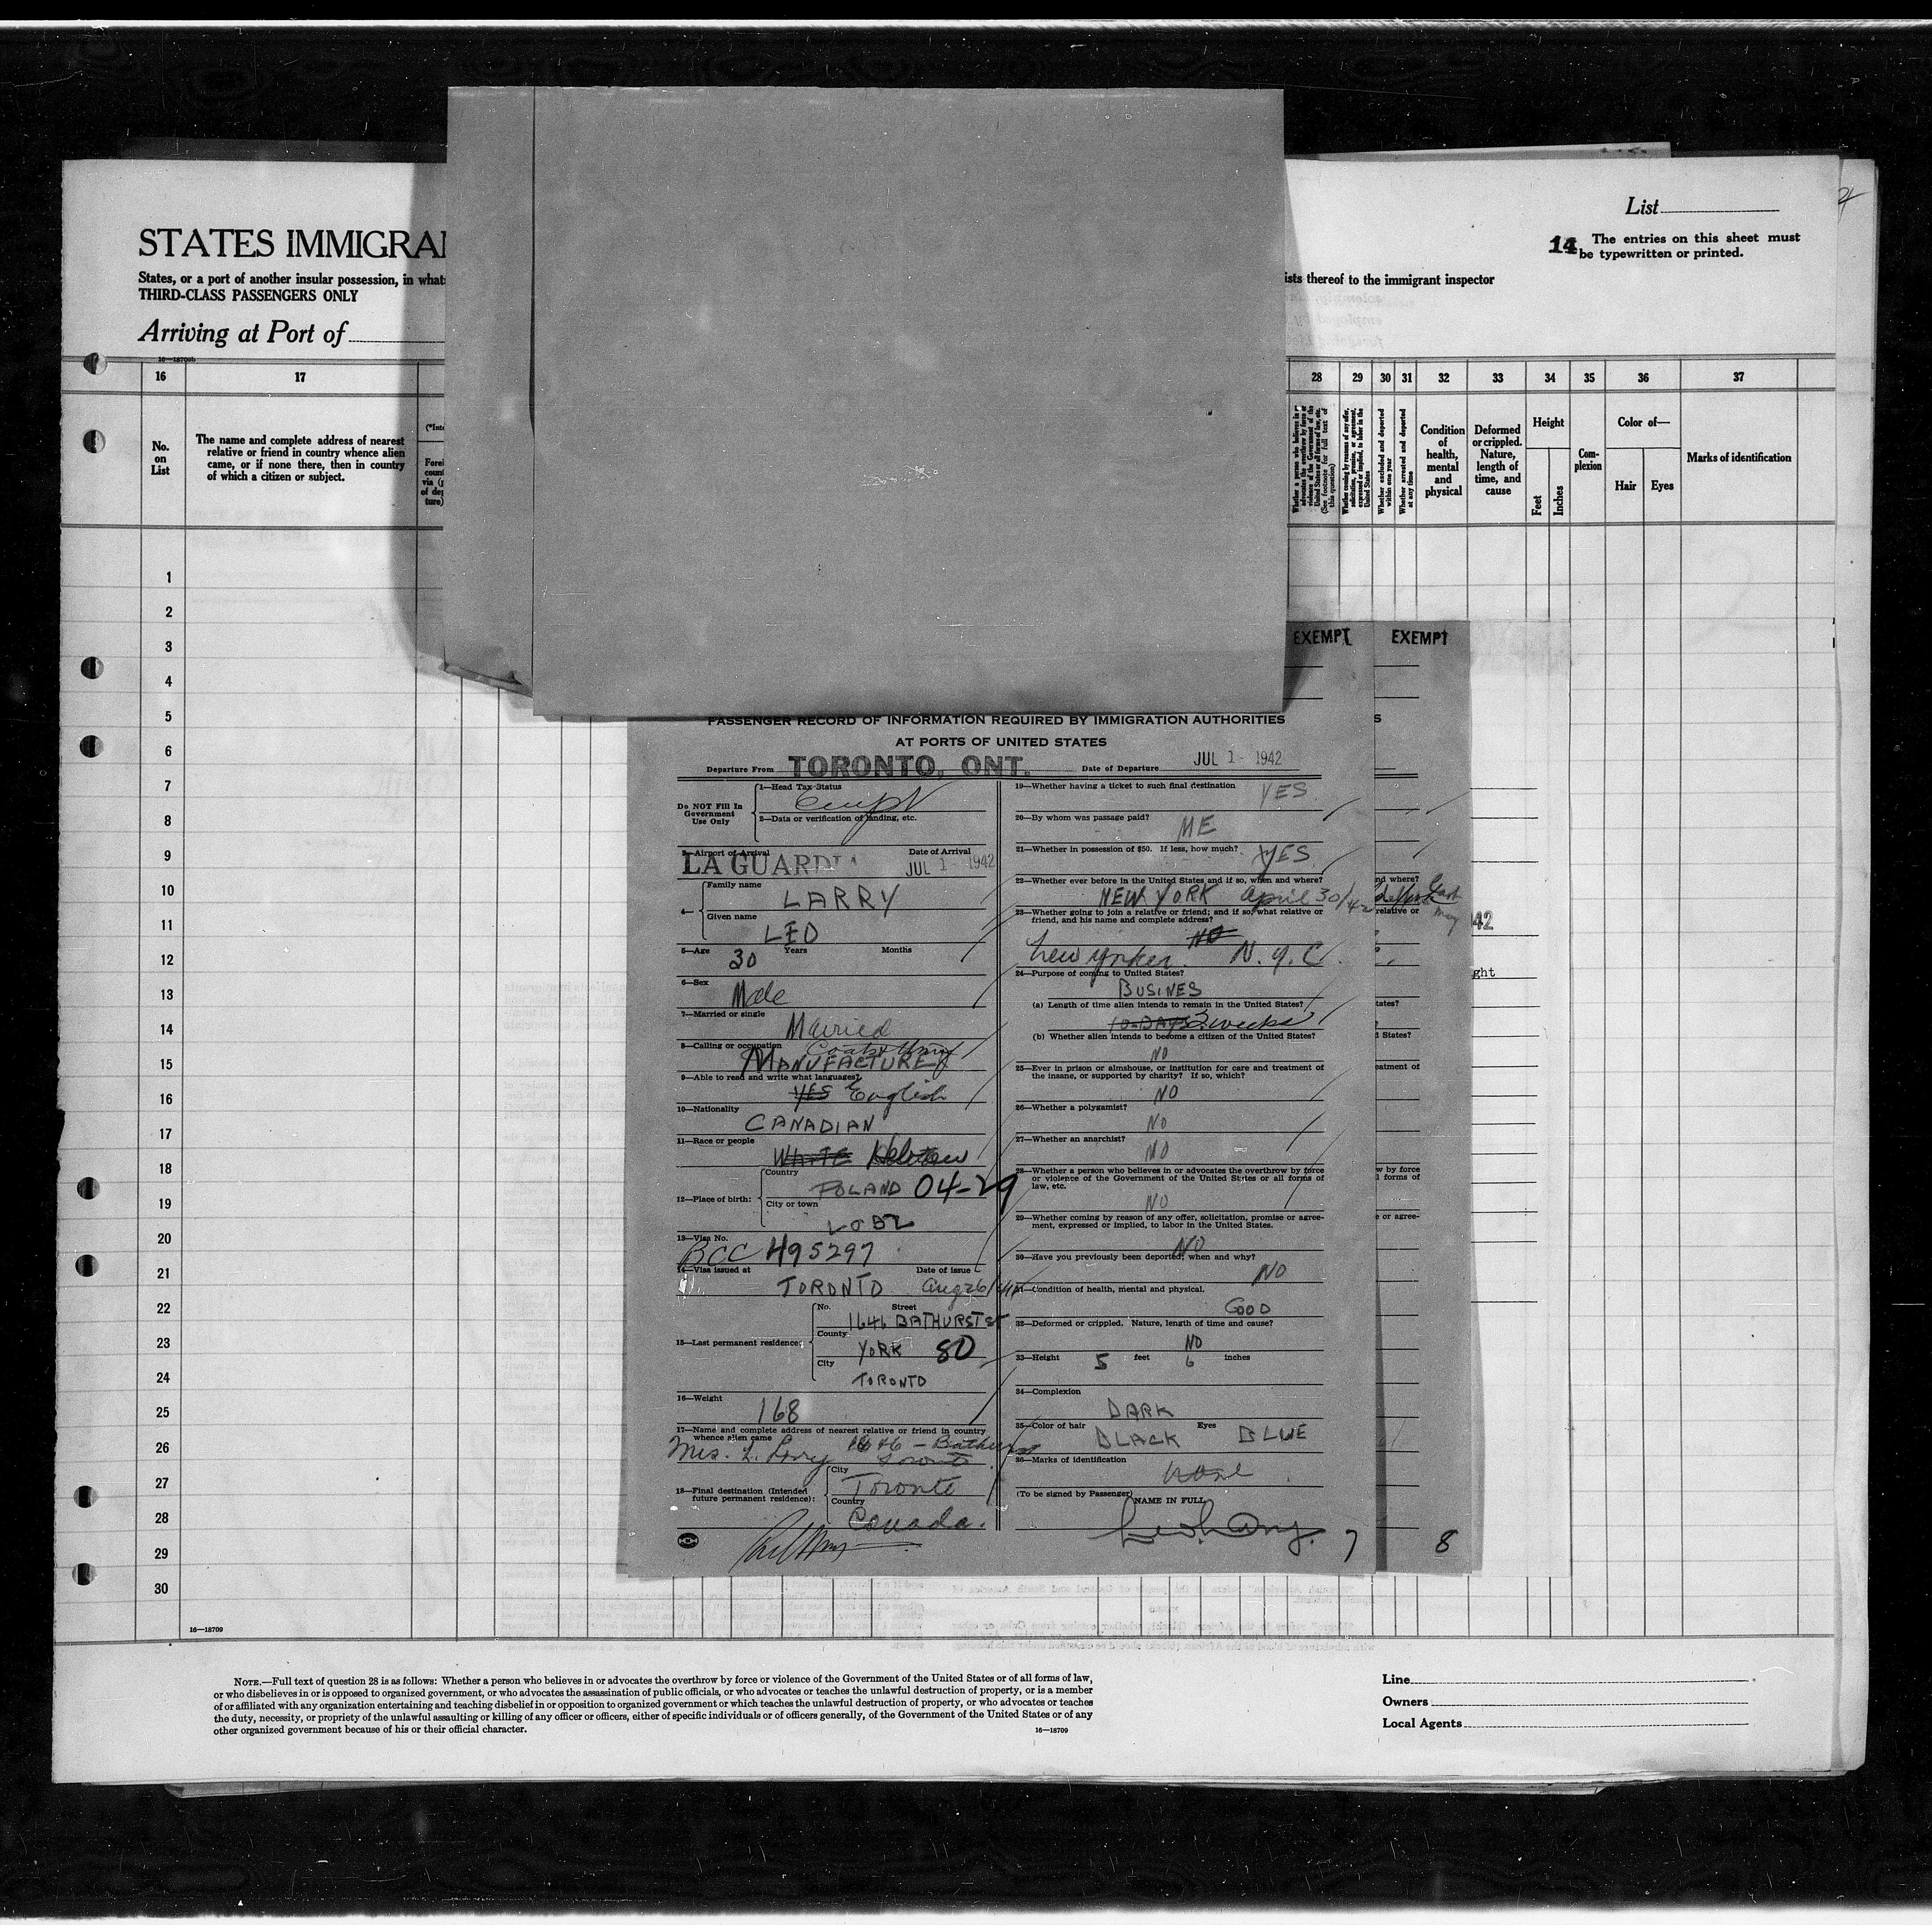 List
14 The entries on this sheet must
be typewritten or printed.
STATES IMMIGRA
States, or a port of another insular possession, in what
ists thereof to the immigrant inspector
THIRD-CLASS PASSENGERS ONLY
Arriving at Port of
16—18709b
16 17 28 29 30 31 32 33 34 35 36 37
No.
on
List
The name and complete address of nearest
relative or friend in country whence alien
came, or if none there, then in country
of which a citizen or subject.
Whether a person who believes in or
advocates the overthrow by force or
violence of the Government of the
United States or all forms of law, etc.
(See footnote for full text of
this question)
Whether coming by reason of any offer,
solicitation, promise, or agreement,
expressed or implied, to labor in the
United States
Whether excluded and deported
within one year
Whether arrested and deported
at any time
Condition
of
health,
mental
and
physical
Deformed
or crippled.
Nature,
length of
time, and
cause
Height
Feet
Inches
Com-
plexion
Color of—
Hair Eyes
Marks of identification
1
2
3
4
5
6
7
8
9
10
11
12
13
14
15
16
17
18
19
20
21
22
23
24
25
26
27
28
29
30
16—18709
EXEMPT EXEMPT
PASSENGER RECORD OF INFORMATION REQUIRED BY IMMIGRATION AUTHORITIES
AT PORTS OF UNITED STATES
Departure From TORONTO, ONT. Date of Departure JUL 1 - 1942
Do NOT Fill In
Government
Use Only
1—Head Tax Status
2—Data or verification of landing, etc.
3—Airport of Arrival Date of Arrival
LA GUARDIA JUL 1 - 1942
4— Family name LARRY
Given name LEO
5—Age 30 Years Months
6—Sex Male
7—Married or single Married
8—Calling or occupation
MANUFACTURE
9—Able to read and write what languages?
YES English
10—Nationality
CANADIAN
11—Race or people
WHITE Hebrew
12—Place of birth: Country POLAND 04-29
City or town
LODZ
13—Visa No.
BCC 495297
14—Visa issued at TORONTO Date of issue Aug 26/41
15—Last permanent residence: No. Street
1646 BATHURST ST
County YORK 80
City
TORONTO
16—Weight 168
17—Name and complete address of nearest relative or friend in country
whence alien came
Mrs. L. Larry 1646 - Bathurst
Toronto
18—Final destination (Intended
future permanent residence): City Toronto
Country
Canada.
19—Whether having a ticket to such final destination YES
20—By whom was passage paid?
ME
21—Whether in possession of $50. If less, how much? YES
22—Whether ever before in the United States and if so, when and where?
NEW YORK April 30/42
23—Whether going to join a relative or friend; and if so, what relative or
friend, and his name and complete address?
NO
New Yorker N.Y.C.
24—Purpose of coming to United States?
BUSINES
(a) Length of time alien intends to remain in the United States?
10-DAYS 2 weeks
(b) Whether alien intends to become a citizen of the United States?
NO
25—Ever in prison or almshouse, or institution for care and treatment of
the insane, or supported by charity? If so, which?
NO
26—Whether a polygamist?
NO
27—Whether an anarchist?
NO
28—Whether a person who believes in or advocates the overthrow by force
or violence of the Government of the United States or all forms of
law, etc.
NO
29—Whether coming by reason of any offer, solicitation, promise or agree-
ment, expressed or implied, to labor in the United States.
NO
30—Have you previously been deported, when and why?
NO
31—Condition of health, mental and physical.
GOOD
32—Deformed or crippled. Nature, length of time and cause?
NO
33—Height 5 feet 6 inches
34—Complexion
DARK
35—Color of hair BLACK Eyes BLUE
36—Marks of identification
None
(To be signed by Passenger)
NAME IN FULL
Leo Larry
7 8
NOTE.—Full text of question 28 is as follows: Whether a person who believes in or advocates the overthrow by force or violence of the Government of the United States or of all forms of law,
or who disbelieves in or is opposed to organized government, or who advocates the assassination of public officials, or who advocates or teaches the unlawful destruction of property, or is a member
of or affiliated with any organization entertaining and teaching disbelief in or opposition to organized government or which teaches the unlawful destruction of property, or who advocates or teaches
the duty, necessity, or propriety of the unlawful assaulting or killing of any officer or officers, either of specific individuals or of officers generally, of the Government of the United States or of any
other organized government because of his or their official character.
16—18709
Line
Owners
Local Agents